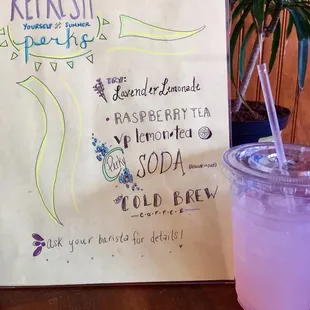 REFRESH
YOURSELF SUMMER
perks
TRY:
Lavender Lemonade
• RASPBERRY TEA
VP lemon-tea
Perky SODA
• COLD BREW
-COFFEE-
ask your barista for details!